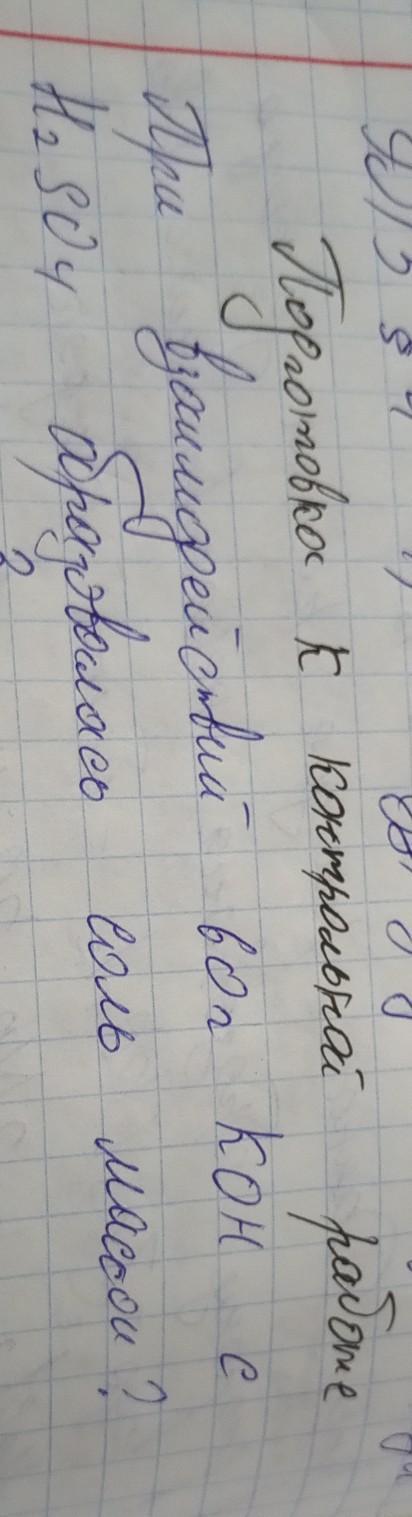 Подготовка к контрольной работе
При взаимодействий 60г KOH с
H₂SO4 образовалась соль массой?
?